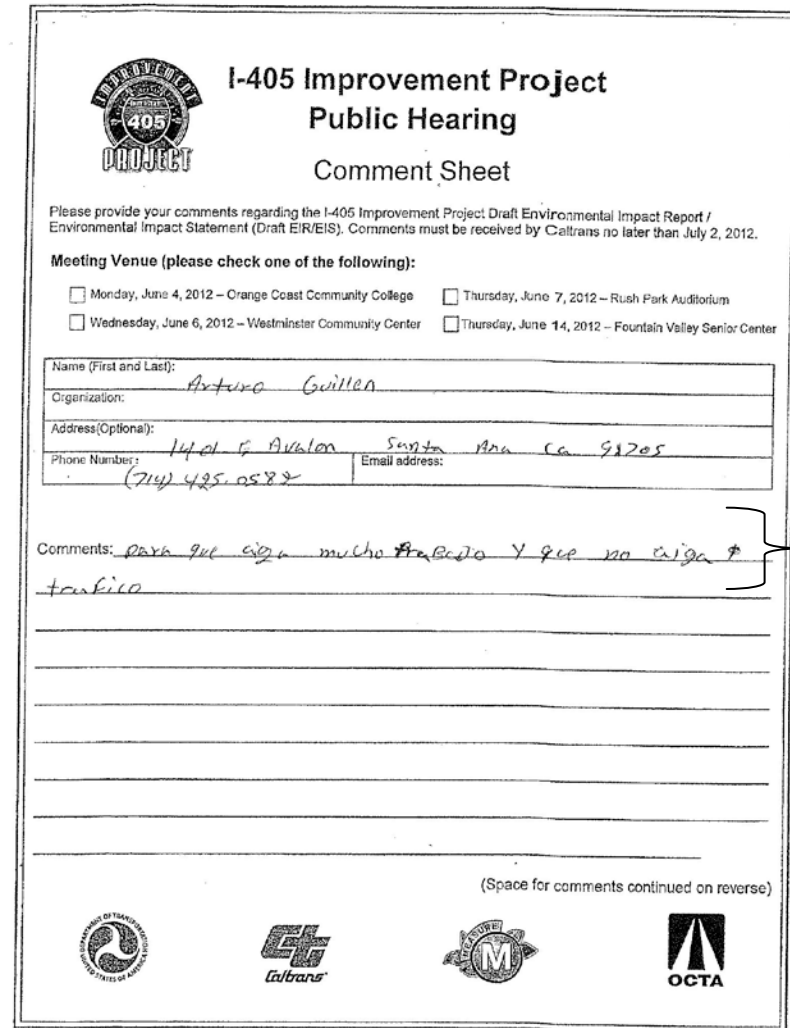 IMPROVEMENT
INTERSTATE
405
PROJECT
I-405 Improvement Project
Public Hearing
Comment Sheet
Please provide your comments regarding the I-405 Improvement Project Draft Environmental Impact Report /
Environmental Impact Statement (Draft EIR/EIS). Comments must be received by Caltrans no later than July 2, 2012.
Meeting Venue (please check one of the following):
Monday, June 4, 2012 – Orange Coast Community College
Thursday, June 7, 2012 – Rush Park Auditorium
Wednesday, June 6, 2012 – Westminster Community Center
Thursday, June 14, 2012 – Fountain Valley Senior Center
Name (First and Last):
Arturo Guillen
Organization:
Address(Optional):
1401 E Avalon Santa Ana Ca 92705
Phone Number:
(714) 425.0582
Email address:
Comments: para que aiga mucho trabado y que no aiga
trafico
(Space for comments continued on reverse)
DEPARTMENT OF TRANSPORTATION
UNITED STATES OF AMERICA
Caltrans
MEASURE
M
OCTA